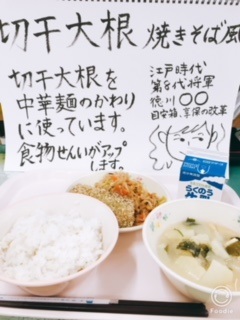 切干大根 焼きそば風
切干大根を
中華麺のかわり
に使っています。
食物せんいがアップ
します。
江戸時代
第8代将軍
徳川〇〇
目安箱、享保の改革
らくのう
Foodie